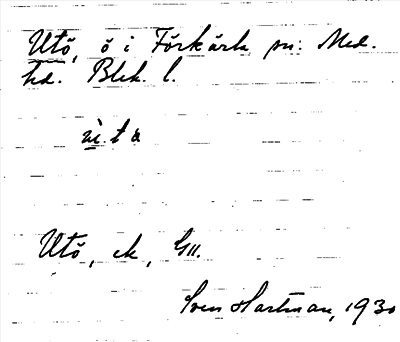 Utö, ö i Förkärla sn. Med.
hd. Blek. l.
ù.t a
Utö, ek, G11.
Sven Hartman, 1930